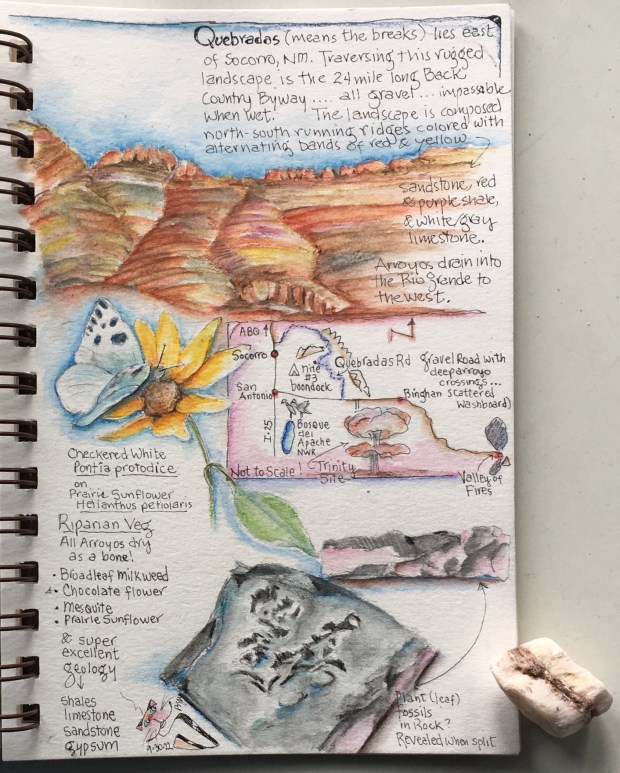 Quebradas (means the breaks) lies east
of Socorro, NM. Traversing this rugged
landscape is the 24 mile long Back
Country Byway .... all gravel ... impassable
when wet. The landscape is composed
north-south running ridges colored with
alternating bands of red & yellow
sandstone, red
& purple shale,
& white/gray
limestone..
Arroyos drain into
the Rio Grande to
the west.
ABQ ↑
Socorro
San
Antonio
I-25
#3
boondock
Quebradas Rd
Bosque
del
Apache
NWR
Not to Scale!
Trinity
Site
N
gravel Road with
deep arroyo
crossings...
Bingham
scattered
Washboard)
Valley of
Fires
Checkered White
Pontia protodice
on
Prairie Sunflower
Helianthus petiolaris
Riparian Veg
All Arroyos dry
as a bone!
• Broadleaf Milkweed
• Chocolate flower
• Mesquite
• Prairie Sunflower
& super
excellent
geology
↓
shales
limestone
sandstone
gypsum
9-30-22
Plant (leaf)
fossils
in Rock?
Revealed when split